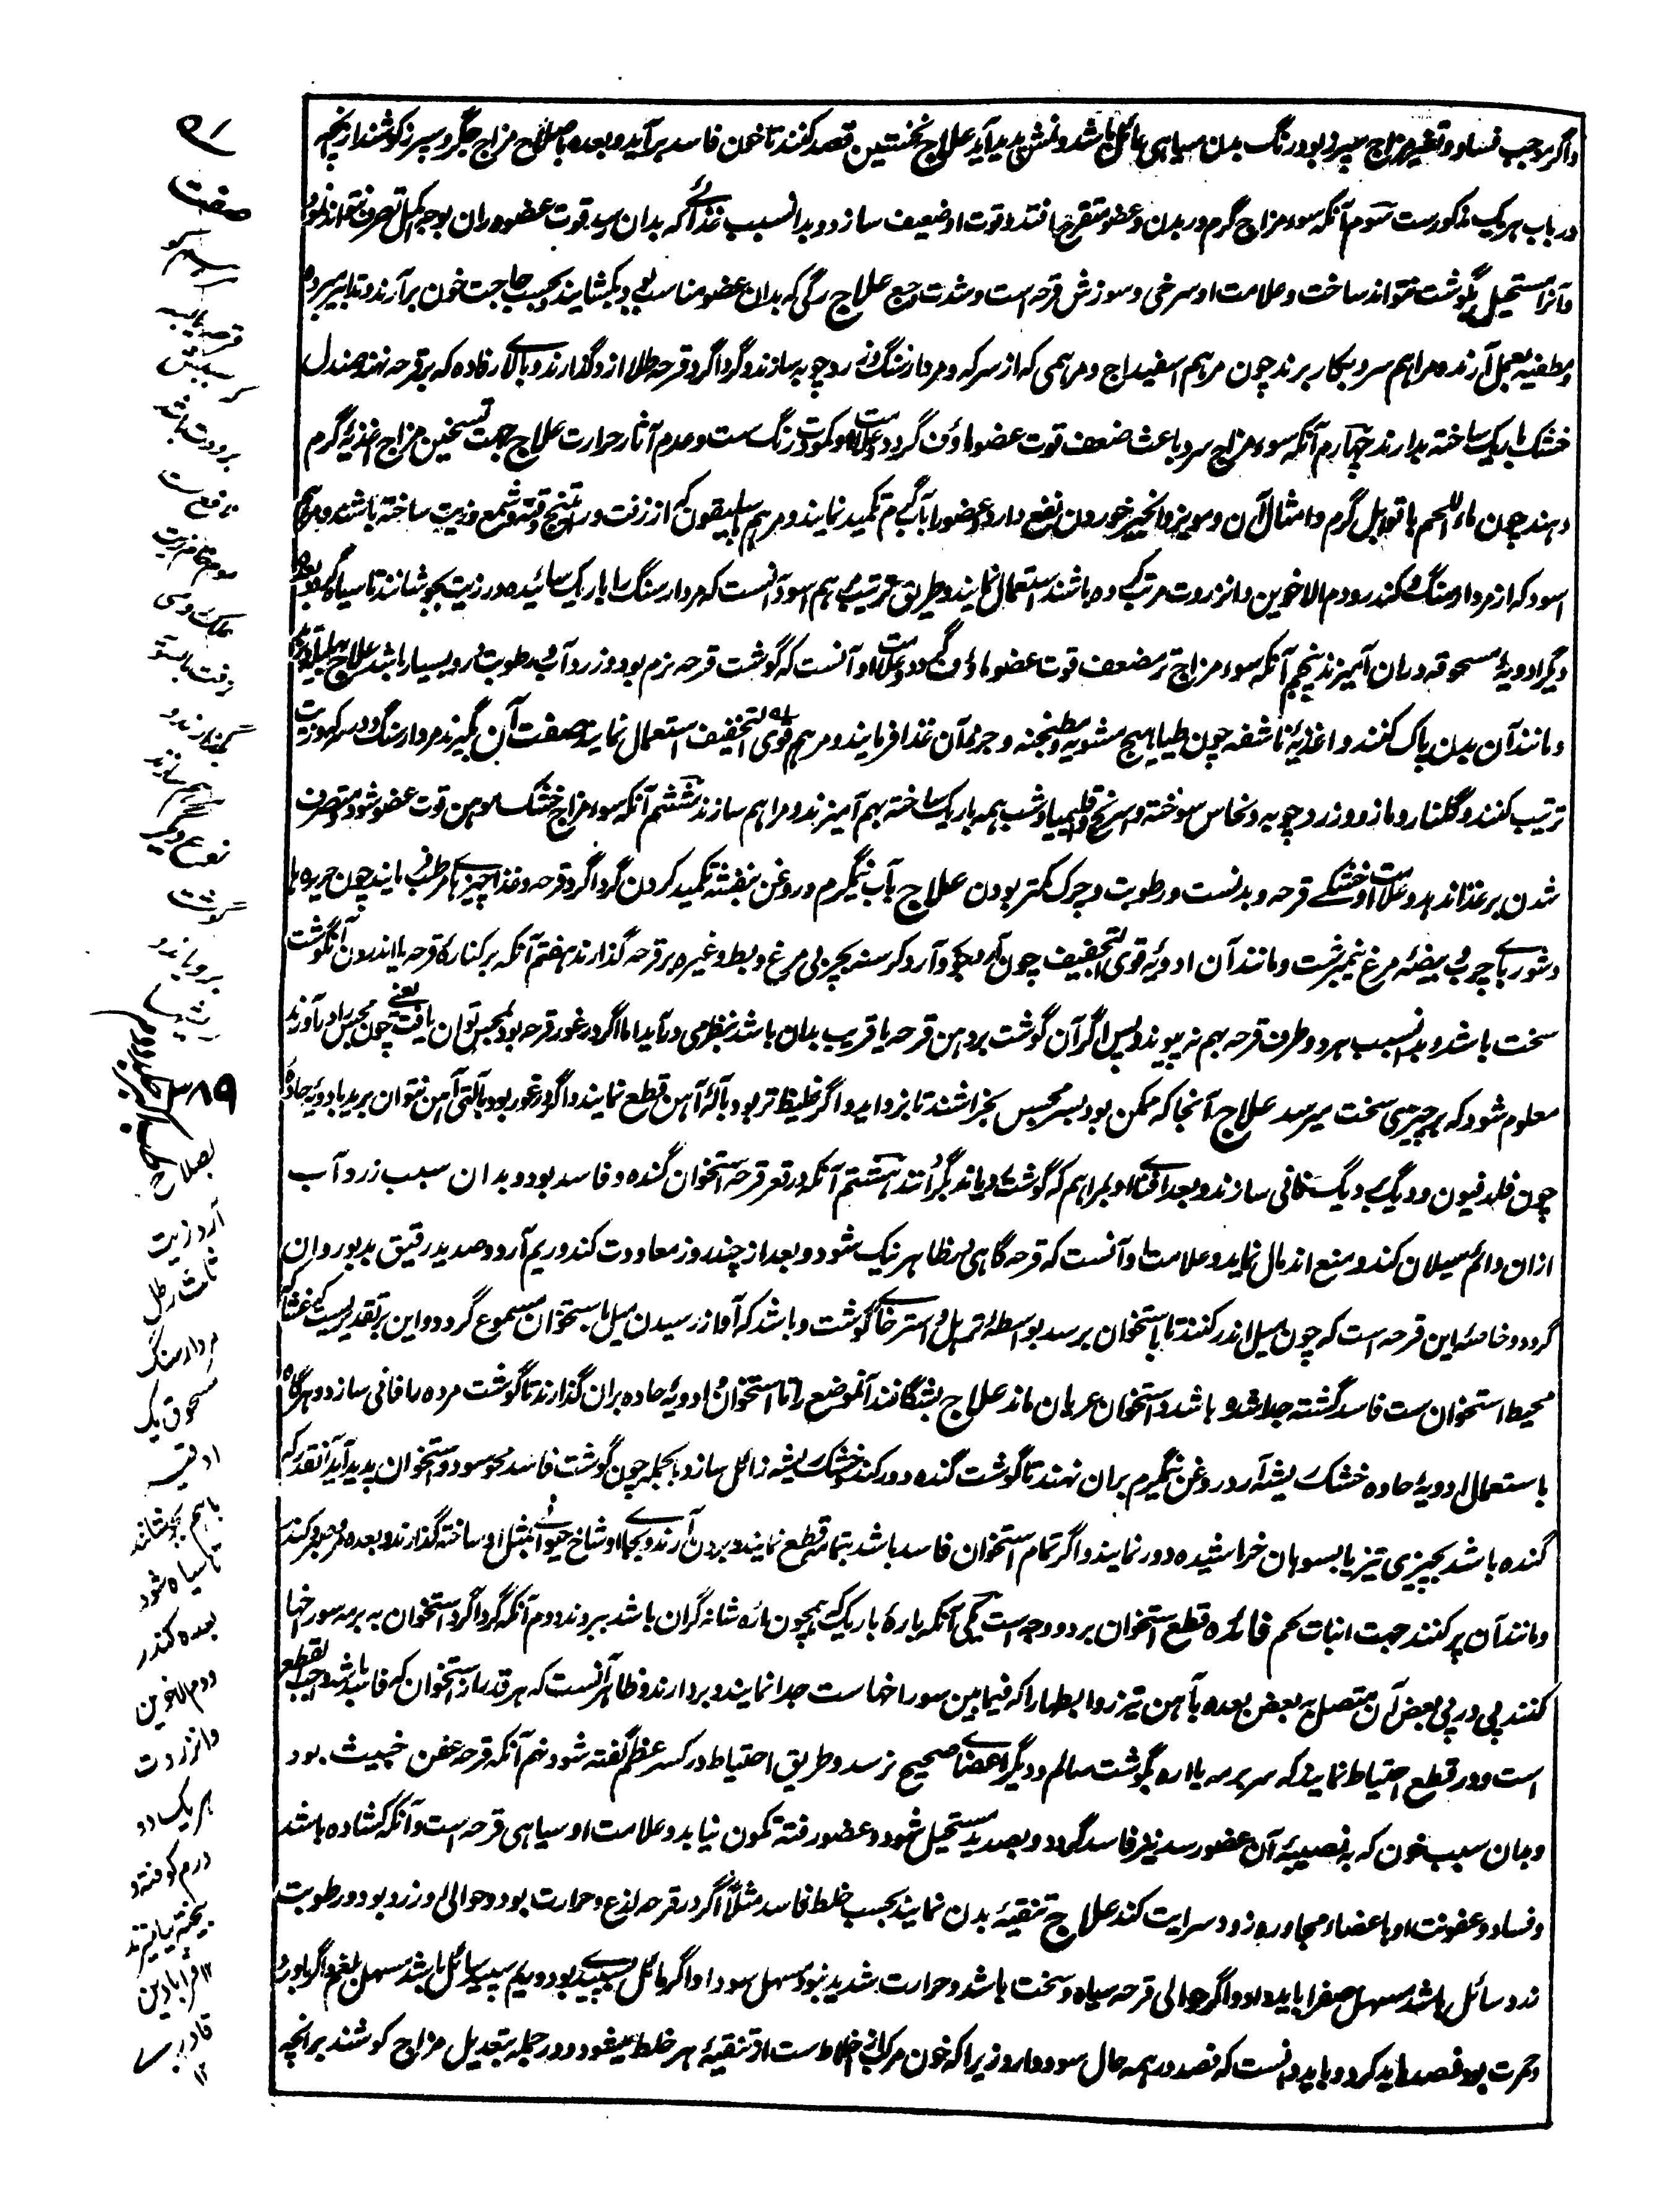 واگر موجب فساد و تغیر مزاج سپرز بود رنگ بدن بسیاهی مائل باشد و نمش پدید آید علاج نخستین فصد کنند تا خون فاسد برآید و بعده باصلاح مزاج جگر و سپرز کوشند از آنچه
در باب هر یک مذکورست سوم آنکه سوء مزاج گرم در بدن و عضو متقرح افتد و قوت او ضعیف سازد و بدانسبب غذائے که بدان رسد قوت عضو دران بوجه اکمل تصرف نتواند نمود
و آنرا مستحیل بگوشت نتواند ساخت و علامت او سرخی و سوزش قرحه است و شدت وجع علاج رگی که بدان عضو مناسب بود بکشایند و بحسب حاجت خون برآرند و تدابیر مبرده
و مطفیه بعمل آرند و مراهم سرد بکار برند چون مرهم اسفیداج و مرهمی که از سرکه و مردارسنگ و زردچوبه سازند و گرداگرد قرحه طلا ازو گذارند و بالای رفاده که بر قرحه نهند صندل
خشک باریک ساخته بدارند چهارم آنکه سوء مزاج سرد باعث ضعف قوت عضو ماؤف گردد و علامت او کمودت رنگ ست و عدم آثار حرارت علاج جهت تسخین مزاج اغذیه گرم
دهند چون ماء اللحم با توابل گرم و امثال آن و مویز و انجیر خوردن نفع دارد و عضو را بآب گرم تکمید نمایند و مرهم باسلیقون که از زفت و راتینج و قنه و شمع و زیت ساخته باشند و مرهم
اسود که از مردارسنگ و کندر و دم الاخوین و انزروت مرتب کرده باشند استعمال نمایند و طریق ترتیب مرهم اسود آنست که مردارسنگ را باریک سائیده در زیت بجوشانند تا سیاه گردد بعده
دیگر ادویه مسحوقه دران آمیزند پنجم آنکه سوء مزاج تر مضعف قوت عضو ماؤف گردد و علامت او آنست که گوشت قرحه نرم بود و زرد آب و رطوبت درو بسیار باشد علاج بهلیله
و مانند آن بدن پاک کنند و اغذیه ناشفه چون طیاهیج مشویه و مطجنه و جز آن غذا فرمایند و مرهم قوی التجفیف استعمال نمایند صفت آن بگیرند مردارسنگ و در سرکه و زیت
ترتیب کنند و گلنار و مازو و زردچوبه و نحاس سوخته و اسرنج و اقلیمیا و شب همه باریک ساخته بهم آمیزند و مراهم سازند ششم آنکه سوء مزاج خشک موهن قوت عضو شود و متصرف
شدن بر غذا ندهد و علامت او خشکے قرحه و بدنست و رطوبت و چرک کمتر بودن علاج بآب نیمگرم و روغن بنفشه تکمید کردن گرداگرد قرحه و غذا چیزهای مرطب باید چون حریره ها
و شوربای چرب و بیضه مرغ نیمبرشت و مانند آن ادویه قوی التجفیف چون آرد جو و آرد کرسنه بچربی مرغ و بط و غیره بر قرحه گذارند هفتم آنکه بر کناره قرحه یا اندرون آن گوشت
سخت باشد و بدانسبب هر دو طرف قرحه بهم نه پیوندد پس اگر آن گوشت بر دهن قرحه یا قریب بدان باشد بنظر می درآید اما اگر در غور قرحه بود بمجس توان یافت یعنی چون مجس را درآورند
معلوم شود که بچیزی سخت میرسد علاج آنجا که ممکن بود بسر مجس بخراشند تا بزداید و اگر غلیظ تر بود بآله آهن قطع نمایند و اگر در غور بود و بآلت آهن نتوان برید بادویه حاده
چون فلدفیون و دیگ بر دیگ فانی سازند و بعد افنای او بمراهم که گوشت رویاند بگذرانند هشتم آنکه در قعر قرحه استخوان گنده و فاسد بود و بدان سبب زرد آب
ازان دائم سیلان کند و منع اندمال نماید و علامت او آنست که قرحه گاهی بظاهر نیک شود و بعد از چند روز معاودت کند و ریم آرد و صدید رقیق بدبو روان
گردد و خاصه این قرحه است که چون میل اندر کنند تا باستخوان برسد بواسطه ترهل و استرخای گوشت و باشد که آواز رسیدن میل باستخوان مسموع گردد و این بر تقدیریست که غشائے که
محیط استخوان ست فاسد گشته جدا شده باشد و استخوان عریان ماند علاج بشگافند آنموضع را تا استخوان و ادویه حاده بران گذارند تا گوشت مرده را فانی سازد و هرگاه
باستعمال ادویه حاده خشک ریشه آرد روغن نیمگرم بران نهند تا گوشت گنده دور کند و خشک ریشه زائل سازد بالجمله چون گوشت فاسد محو شود و استخوان پدید آید آنقدر که
گنده باشد بچیزی تیز یا بسوهان خراشیده دور نمایند و اگر تمام استخوان فاسد باشد بتمامه قطع نمایند و بیرون آرند و بجای او شاخ حیوانے بمثل او ساخته گذارند و بعده
و مانند آن پر کنند جهت انبات لحم فائده قطع استخوان بر دو وجه است یکی آنکه باره باریک که همچون اره شانه گران باشد ببرند دوم آنکه گرداگرد استخوان به برمه سوراخها
کنند پی در پی بعض آن متصل به بعض بعده بآهن تیز روابطها را که فیما بین سوراخها ست جدا نمایند و بردارند و ظاهر آنست که هر قدر از استخوان که فاسد باشد واجب القطع
است و در قطع احتیاط نمایند که سر برمه یا اره بگوشت سالم و دیگر اعضای صحیح نرسد و طریق احتیاط در کسر عظم گفته شود نهم آنکه قرحه عفن خبیث بود
و بدان سبب خون که به نصیبه آن عضو رسد نیز فاسد گردد و بصدید مستحیل شود و عضو رفته تمکون نیابد و علامت او سیاهی قرحه است و آنکه کشاده باشد
و فساد و عفونت او باعضاء مجاوره زود سرایت کند علاج تنقیه بدن نمایند بحسب خلط فاسد مثلاً اگر در قرحه لذع و حرارت بود و حوالی او زرد بود و رطوبت
زرد سائل باشد مسهل صفرا باید داد و اگر حوالی قرحه سیاه و سخت باشد و حرارت شدید نبود مسهل سودا و اگر مائل بسپیدی بود و ریم سپید سائل باشد مسهل بلغم و اگر باورم
و حمرت بود فصد باید کرد و باید دانست که فصد در همه حال سود دارد زیرا که خون مرکب اخلاط ست از تنقیه هر خلط میفید و در جمله بتعدیل مزاج کوشند بر آنچه
صفت
نوع دیگر
گوشت
برویاند
۳۸۹
بصلاح
آرد زیت
ثلث رطل
مردارسنگ
مسحوق یک
اوقیه
باهم بجوشانند
تا سیاه شود
بعده کندر
و دم الاخوین
و انزروت
هر یک دو
درم کوفته و
بیخته بیامیزند
۱۲ قرابادین
قادری
۱۲